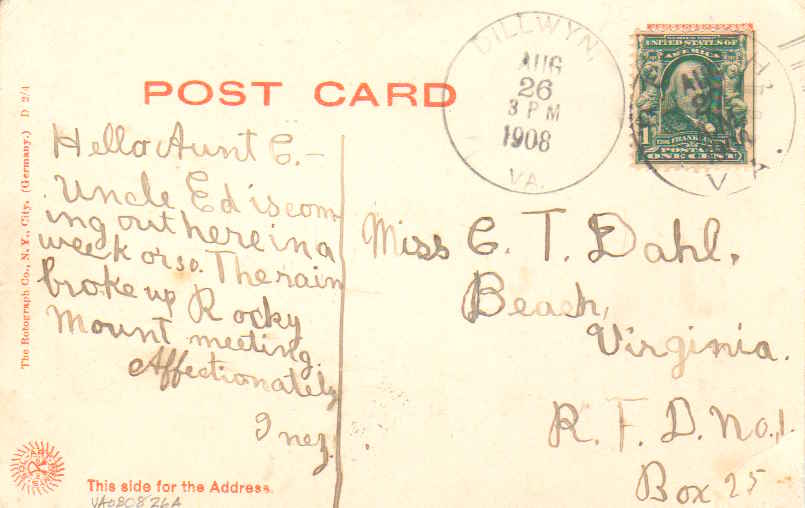 POST CARD
DILLWYN,
AUG
26
3 PM
1908
VA.
UNITED STATES OF
AMERICA
1
POSTAGE
ONE CENT
VA.
Hello Aunt C.-
Uncle Ed is com-
ing out here in a
week or so. The rain
broke up Rocky
Mount meeting.
Affectionately
Inez.
Miss C. T. Dahl,
Beach,
Virginia.
R. F. D. No. 1.
Box 25
The Rotograph Co., N. Y., City. (Germany.) D 2/4
This side for the Address.
VA080826A